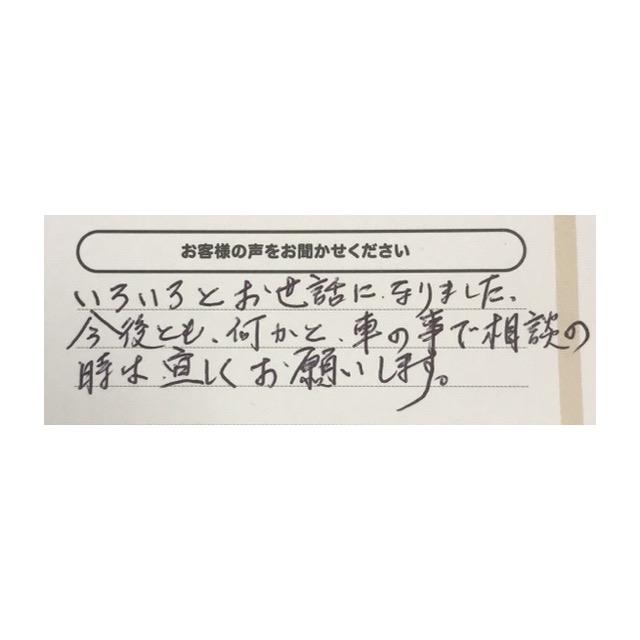 お客様の声をお聞かせください
いろいろとお世話に、なりました、
今後とも、何かと、車の事で相談の
時は、宜しくお願いします。